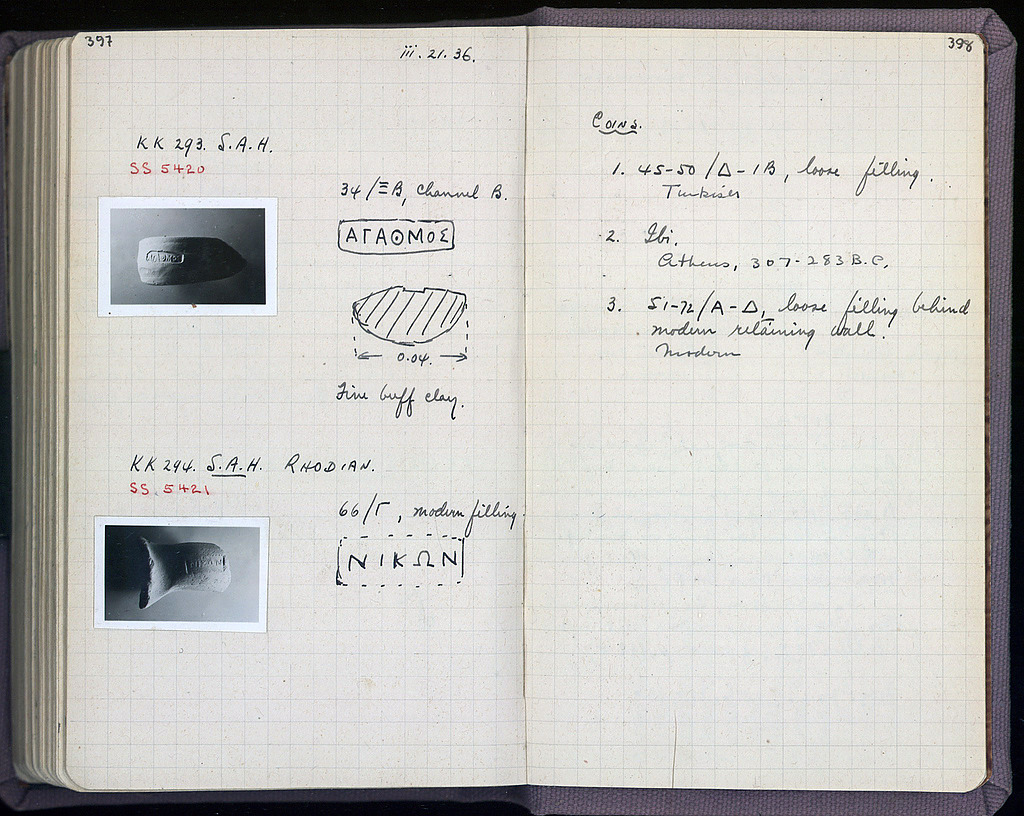 397
iii. 21. 36.
KK 293. S.A.H.
SS 5420
34/ΞB, channel B.
ΑΓΑΘΜΟΣ
0.04.
Fine buff clay.
KK 294. S.A.H. RHODIAN.
SS 5421
66/Γ, modern filling.
ΝΙΚΩΝ
398
COINS.
1. 45-50/Δ-IB, loose filling.
Turkish
2. Ibi.
Athens, 307-283 B.C.
3. 51-72/A-Δ, loose filling behind
modern retaining wall.
Modern